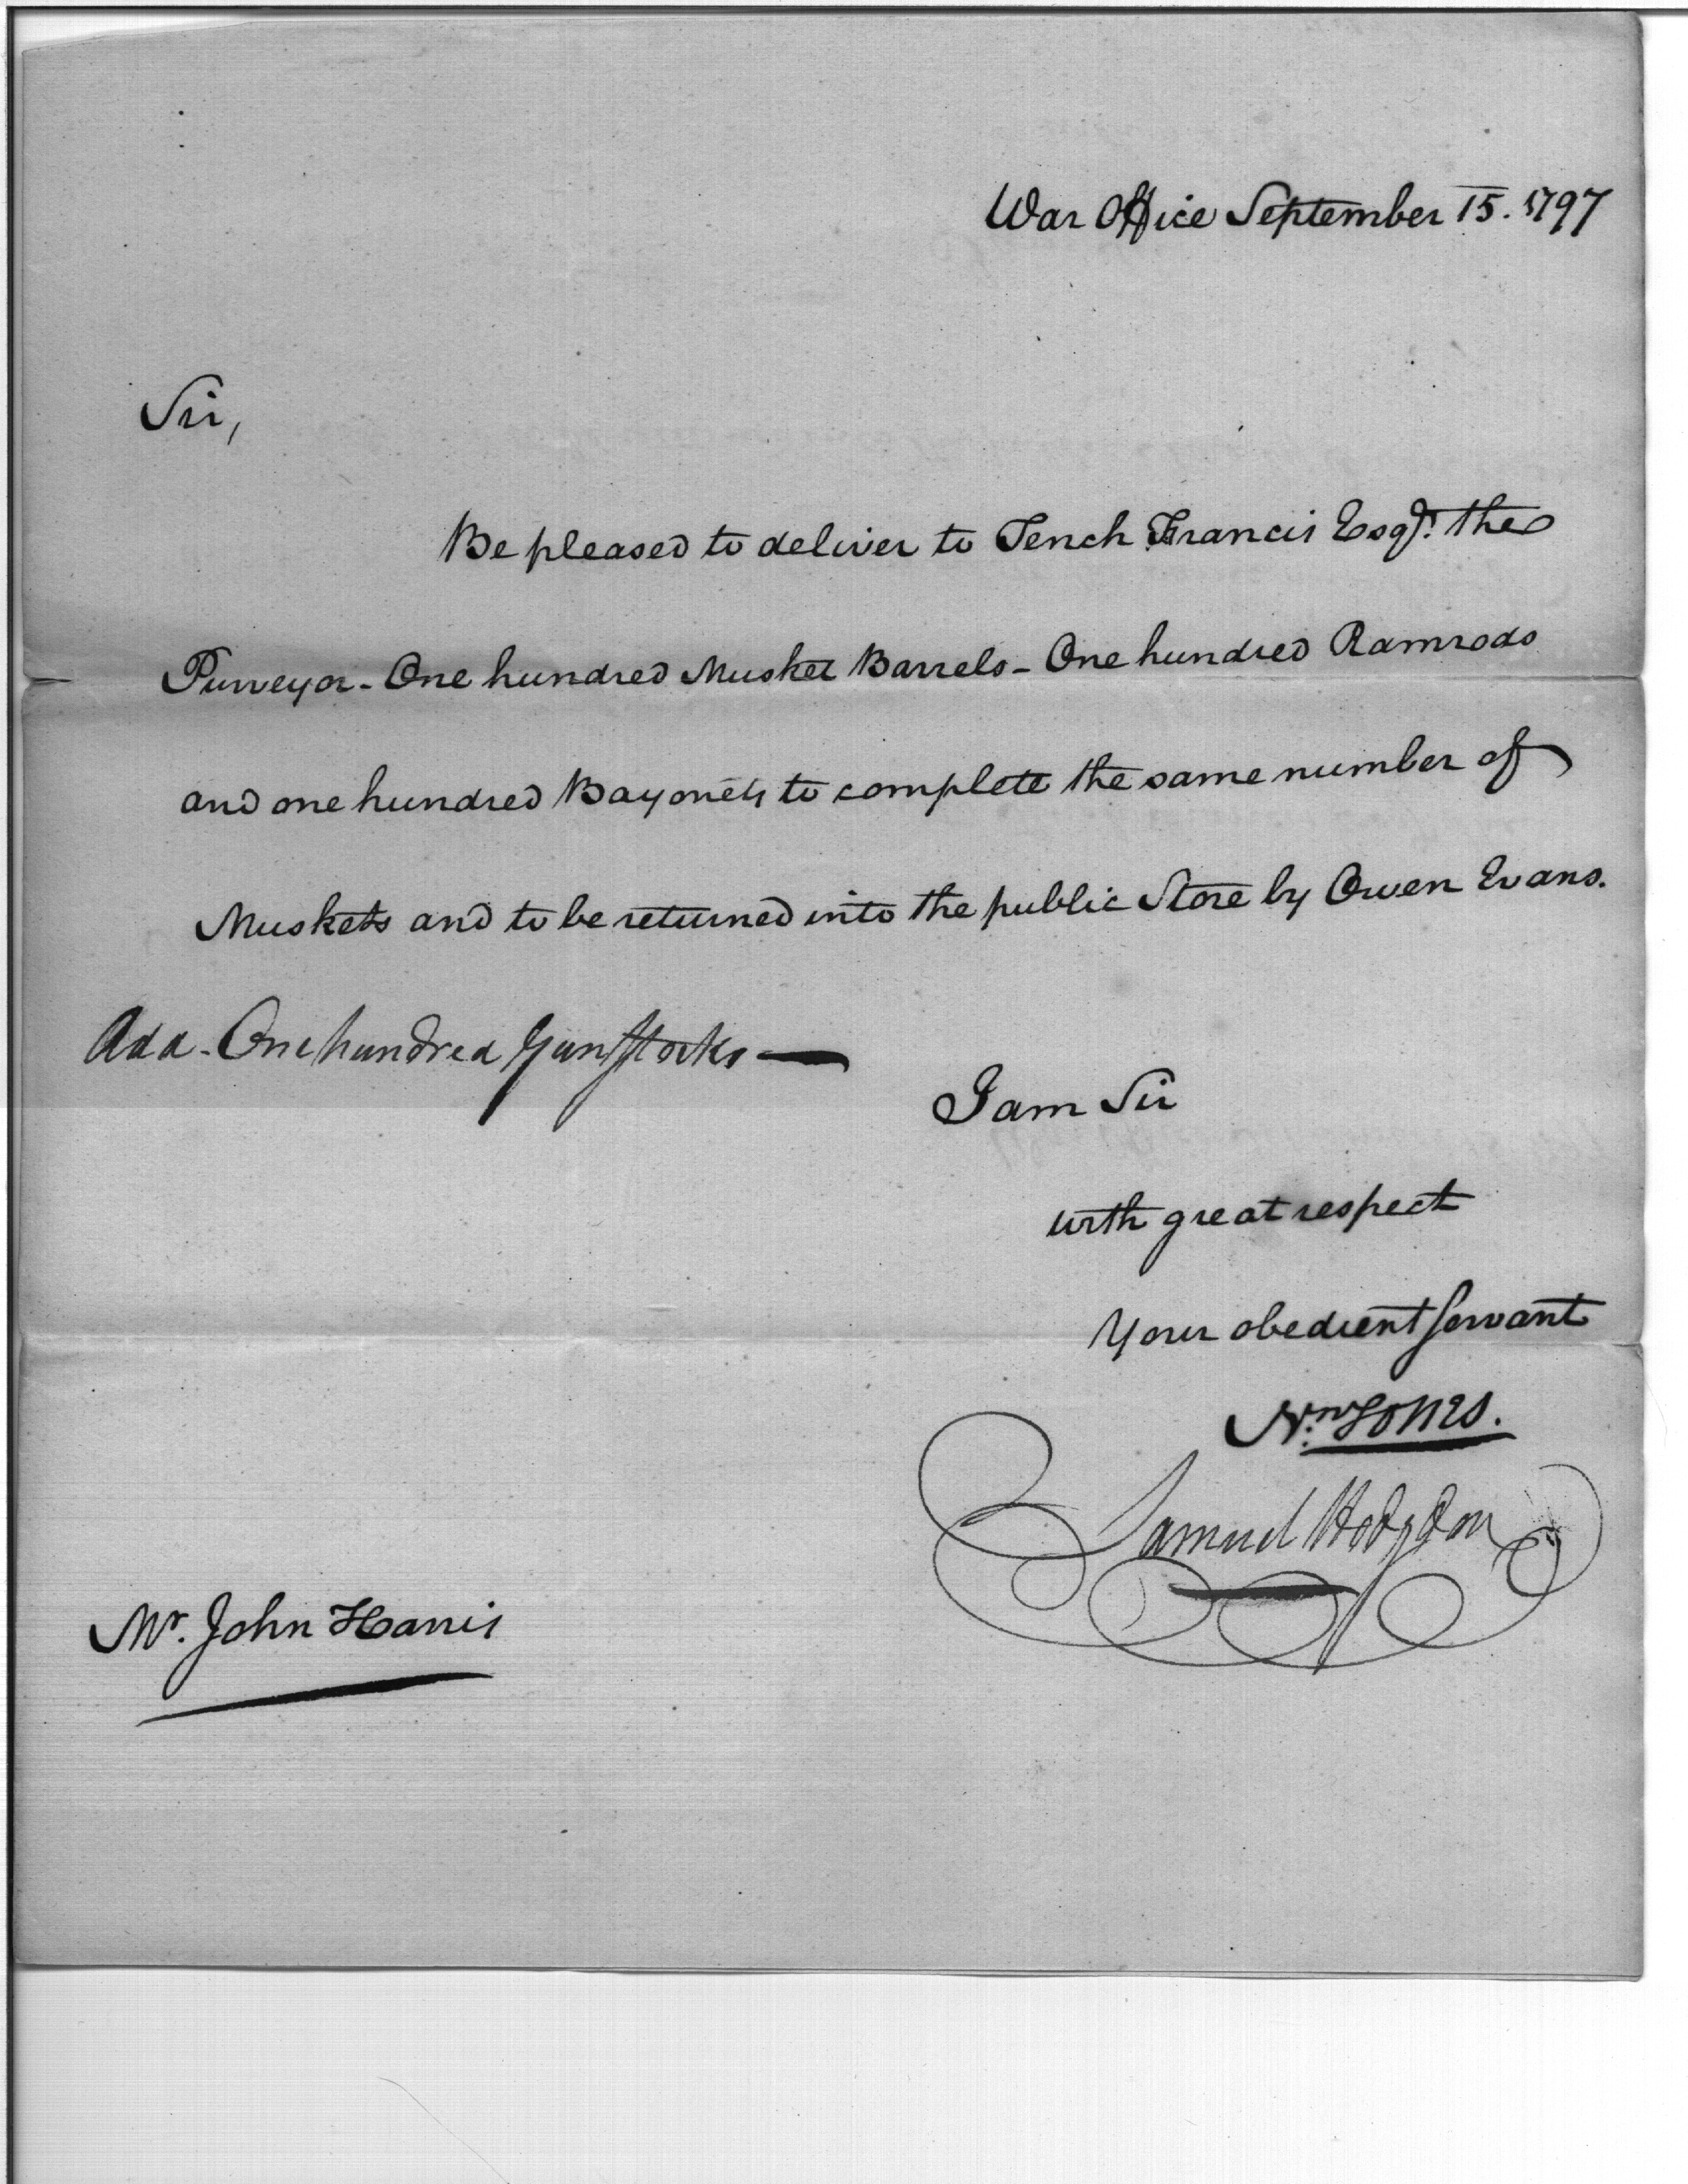 War Office September 15. 1797
Sir,
Be pleased to deliver to Tench Francis Esqr. the
Purveyor - One hundred Musket Barrels - One hundred Ramrods
and one hundred Bayonets to complete the same number of
Muskets and to be returned into the public Store by Owen Evans.
Add - One hundred Gunstocks —
I am Sir
with great respect
Your obedient servant
Nn Jones.
Samuel Hodgdon
Mr. John Harris